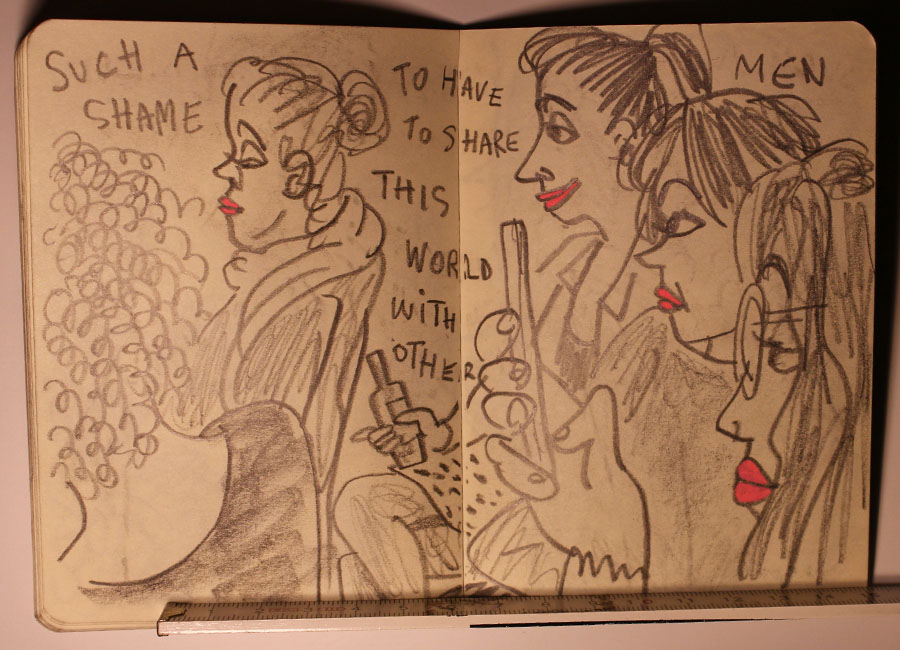 SUCH A
SHAME
TO HAVE
TO SHARE
THIS
WORLD
WITH
OTHER
MEN